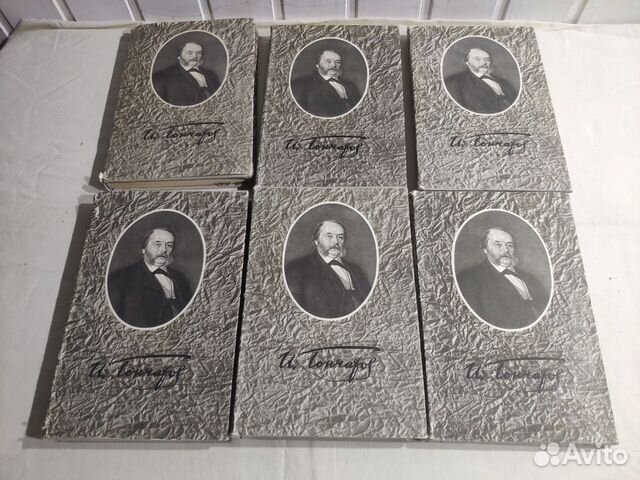 Ив. Гончаров
Ив. Гончаров
Ив. Гончаров
Ив. Гончаров
Ив. Гончаров
Ив. Гончаров
Avito